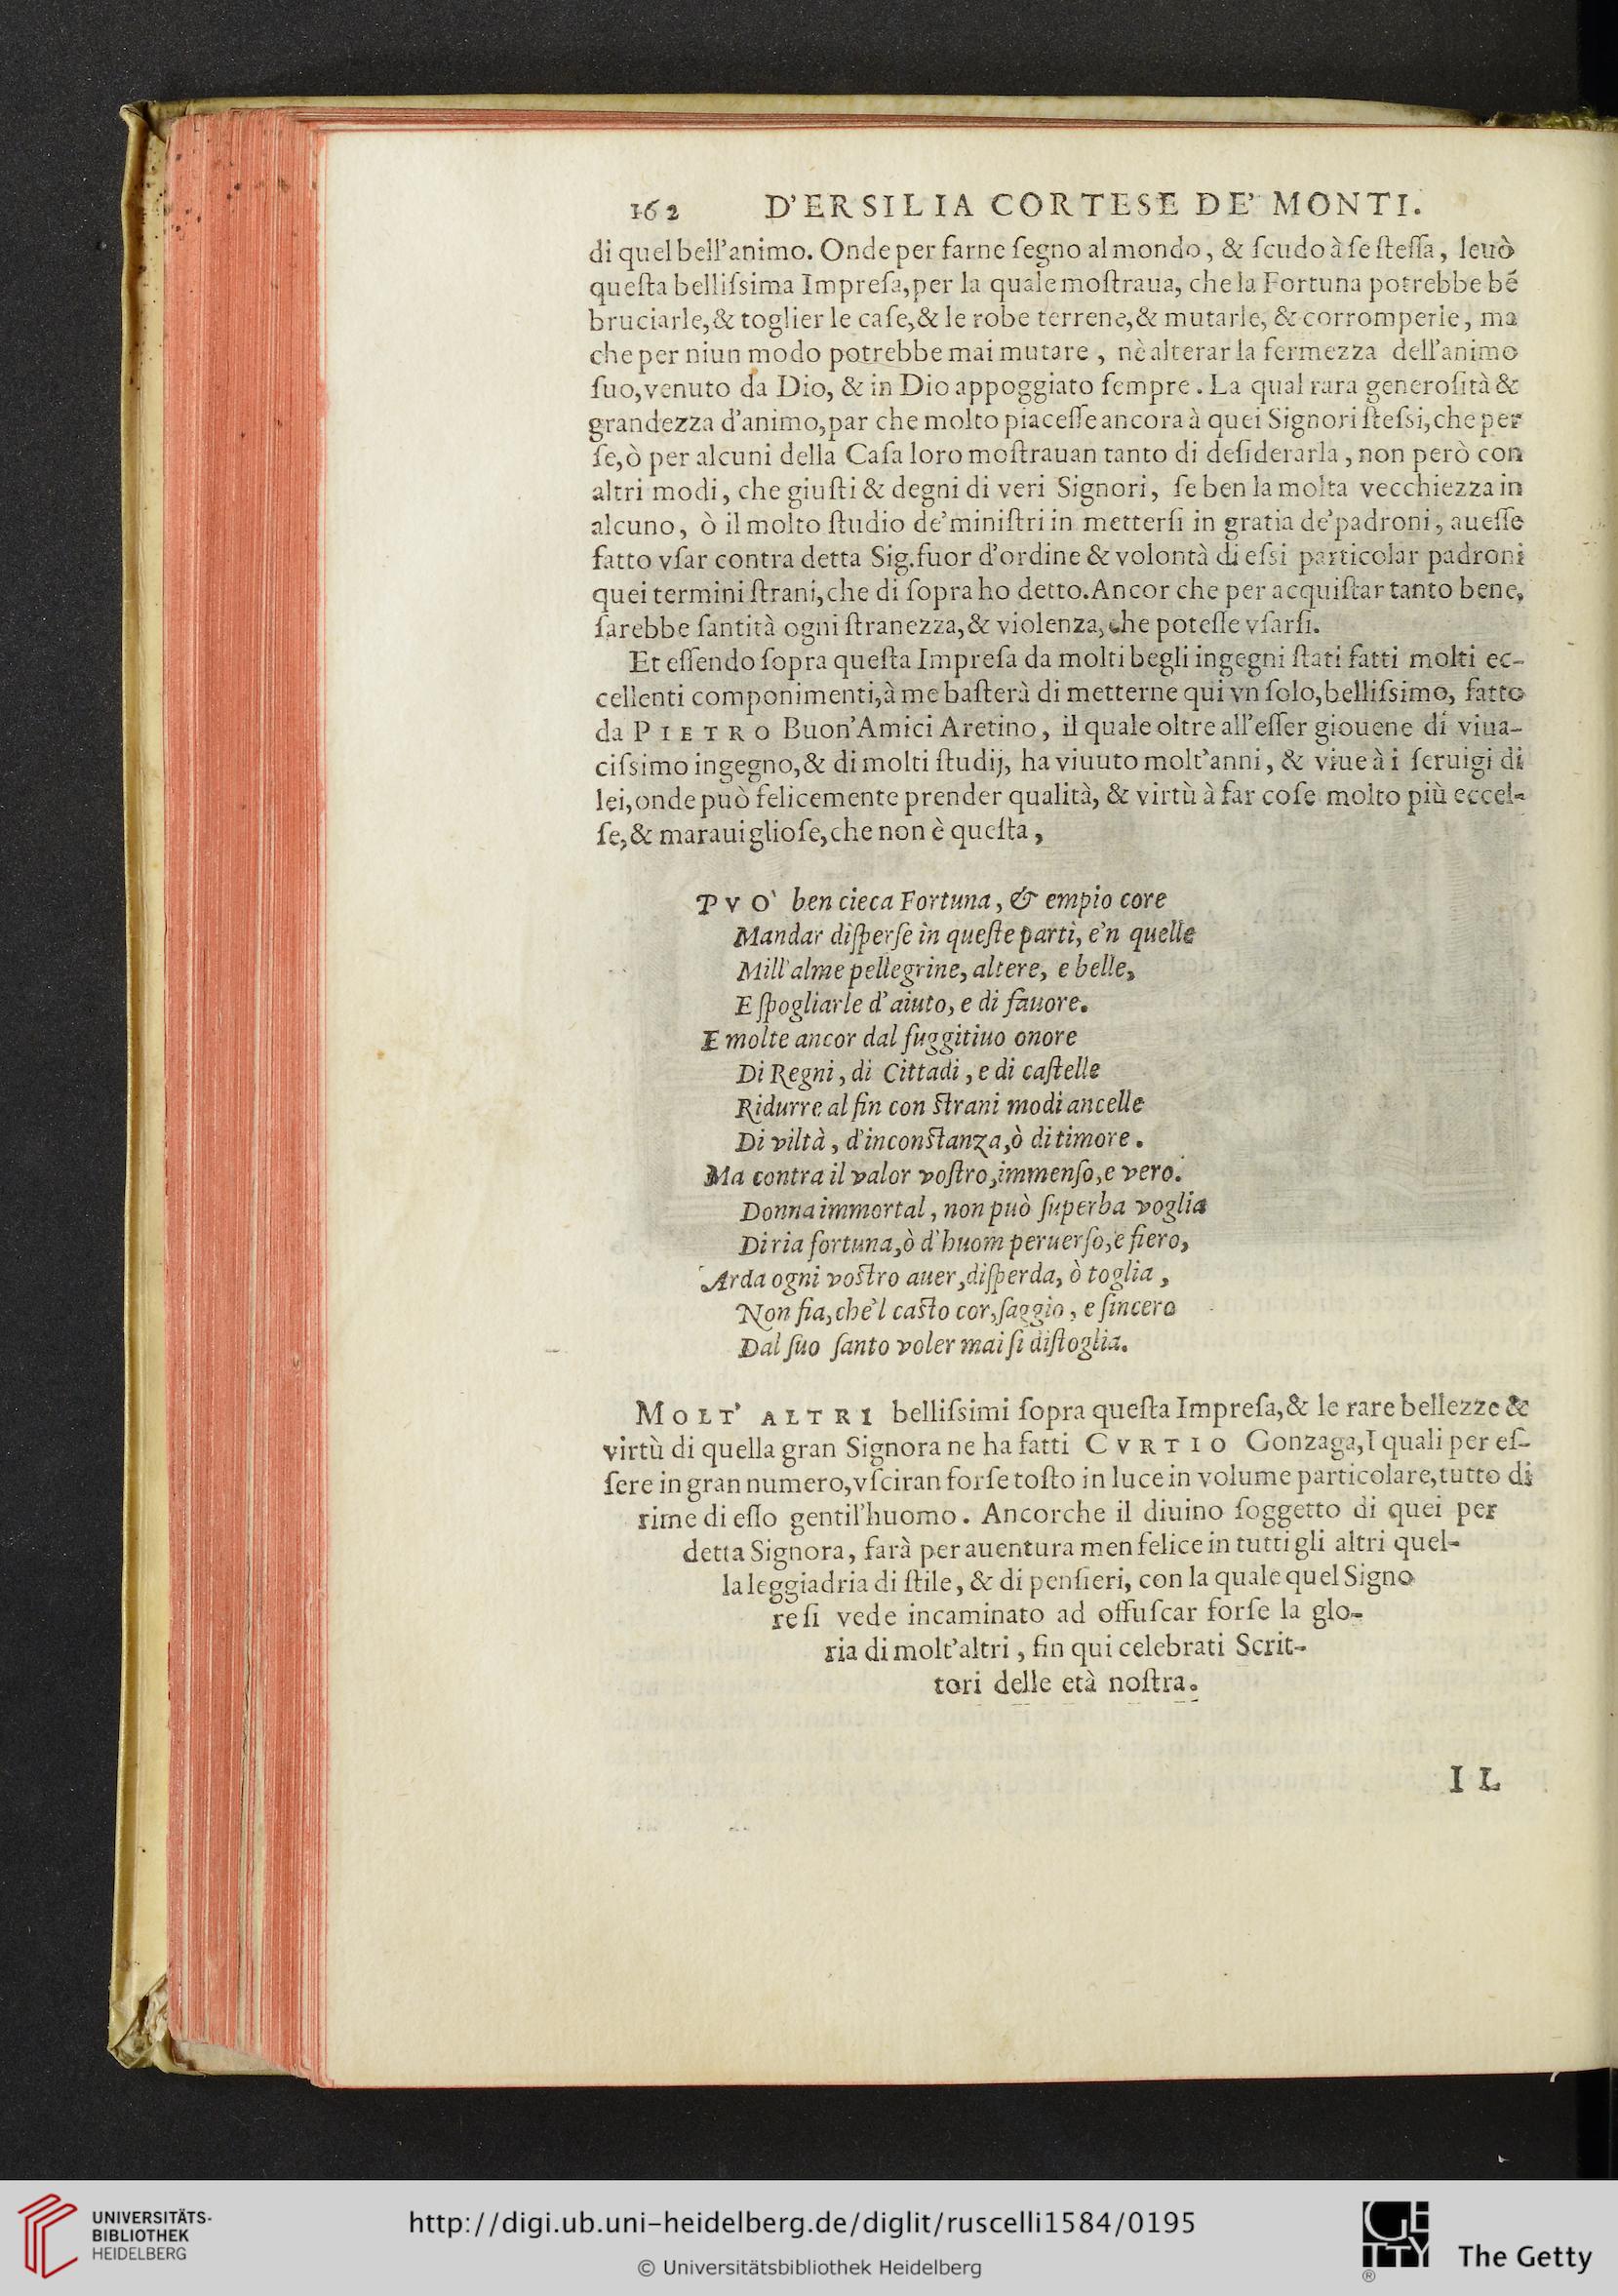 162 D'ERSILIA CORTESE DE' MONTI.
di quel bell'animo. Onde per farne ſegno al mondo, & ſcudo à ſe ſteſſa, leuò
queſta belliſsima Impreſa, per la quale moſtraua, che la Fortuna potrebbe bẽ
bruciarle, & toglier le caſe, & le robe terrene, & mutarle, & corromperle, ma
che per niun modo potrebbe mai mutare, nè alterar la fermezza dell'animo
ſuo, venuto da Dio, & in Dio appoggiato ſempre. La qual rara generoſità &
grandezza d'animo, par che molto piaceſſe ancora à quei Signori ſteſsi, che per
ſe, ò per alcuni della Caſa loro moſtrauan tanto di deſiderarla, non però con
altri modi, che giuſti & degni di veri Signori, ſe ben la molta vecchiezza in
alcuno, ò il molto ſtudio de' miniſtri in metterſi in gratia de' padroni, aueſſe
fatto vſar contra detta Sig. fuor d'ordine & volontà di eſsi particolar padroni
quei termini ſtrani, che di ſopra ho detto. Ancor che per acquiſtar tanto bene,
ſarebbe ſantità ogni ſtranezza, & violenza, che poteſſe vſarſi.
Et eſſendo ſopra queſta Impreſa da molti begli ingegni ſtati fatti molti ec-
cellenti componimenti, à me baſterà di metterne qui vn ſolo, belliſsimo, fatto
da PIETRO Buon'Amici Aretino, il quale oltre all'eſſer giouene di viua-
ciſsimo ingegno, & di molti ſtudij, ha viuuto molt'anni, & viue à i ſeruigi di
lei, onde può felicemente prender qualità, & virtù à far coſe molto più eccel-
ſe, & marauiglioſe, che non è queſta,
PVO' ben cieca Fortuna, & empio core
Mandar diſperſe in queſte parti, e'n quelle
Mill'alme pellegrine, altere, e belle,
E ſpogliarle d'aiuto, e di fauore.
E molte ancor dal fuggitiuo onore
Di Regni, di Cittadi, e di caſtelle
Ridurre al fin con ſtrani modi ancelle
Di viltà, d'inconſtanza, ò di timore.
Ma contra il valor voſtro, immenſo, e vero.
Donna immortal, non può ſuperba voglia
Di ria fortuna, ò d'huom peruerſo, e fiero,
Arda ogni voſtro auer, diſperda, ò toglia,
Non fia, che'l caſto cor, ſaggio, e ſincero
Dal ſuo ſanto voler mai ſi diſtoglia.
MOLT' ALTRI belliſsimi ſopra queſta Impreſa, & le rare bellezze &
virtù di quella gran Signora ne ha fatti CVRTIO Gonzaga, I quali per eſ-
ſere in gran numero, vſciran forſe toſto in luce in volume particolare, tutto di
rime di eſſo gentil'huomo. Ancorche il diuino ſoggetto di quei per
detta Signora, farà per auentura men felice in tutti gli altri quel-
la leggiadria di ſtile, & di penſieri, con la quale quel Signo
re ſi vede incaminato ad offuſcar forſe la glo-
ria di molt'altri, fin qui celebrati Scrit-
tori delle età noſtra.
IL
UNIVERSITÄTS-
BIBLIOTHEK
HEIDELBERG
http://digi.ub.uni-heidelberg.de/diglit/ruscelli1584/0195
© Universitätsbibliothek Heidelberg
GETTY
®
The Getty